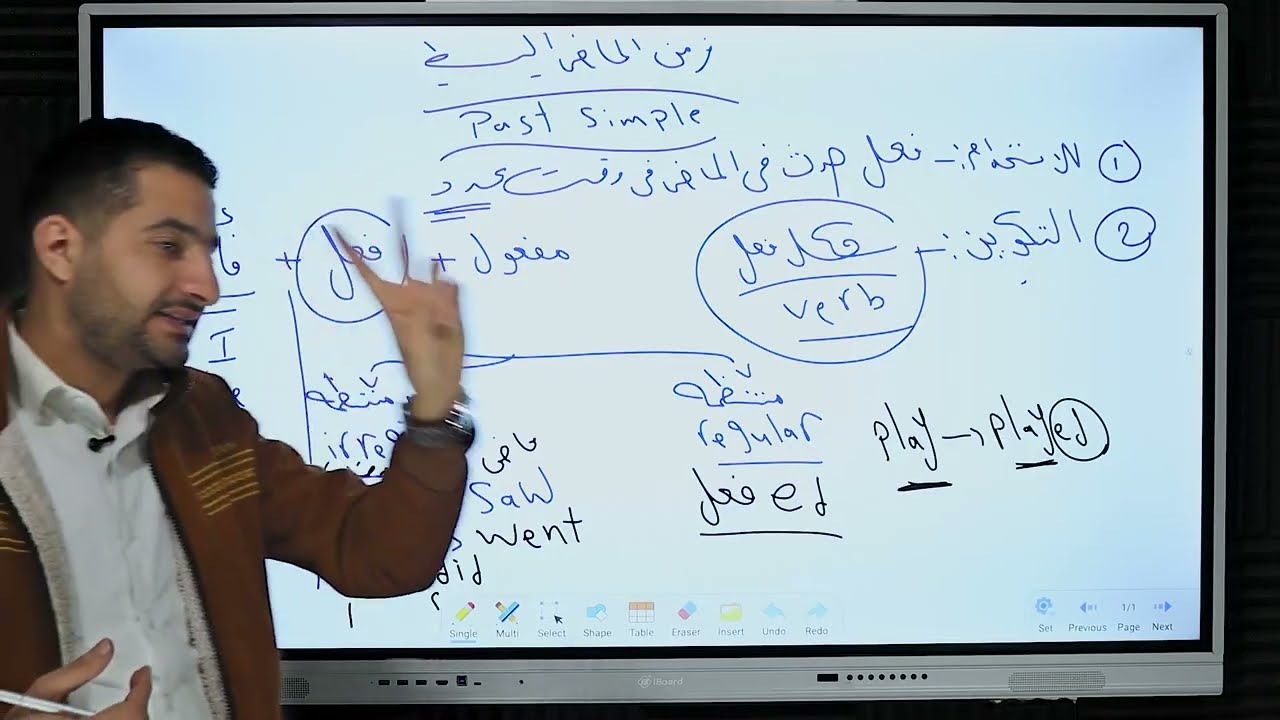 زمن الماضي البسيط
Past Simple
① الاستخدام:- فعل حدث في الماضي في وقت محدد
② التكوين:- شكل فعل
verb
+ فعل + مفعول
I
منتظمه
regular
فعل ed
play → played
منتظمه
irre
ماضي
saw
went
did
Single Multi Select Shape Table Eraser Insert Undo Redo
Set Previous 1/1 Page Next
iBoard